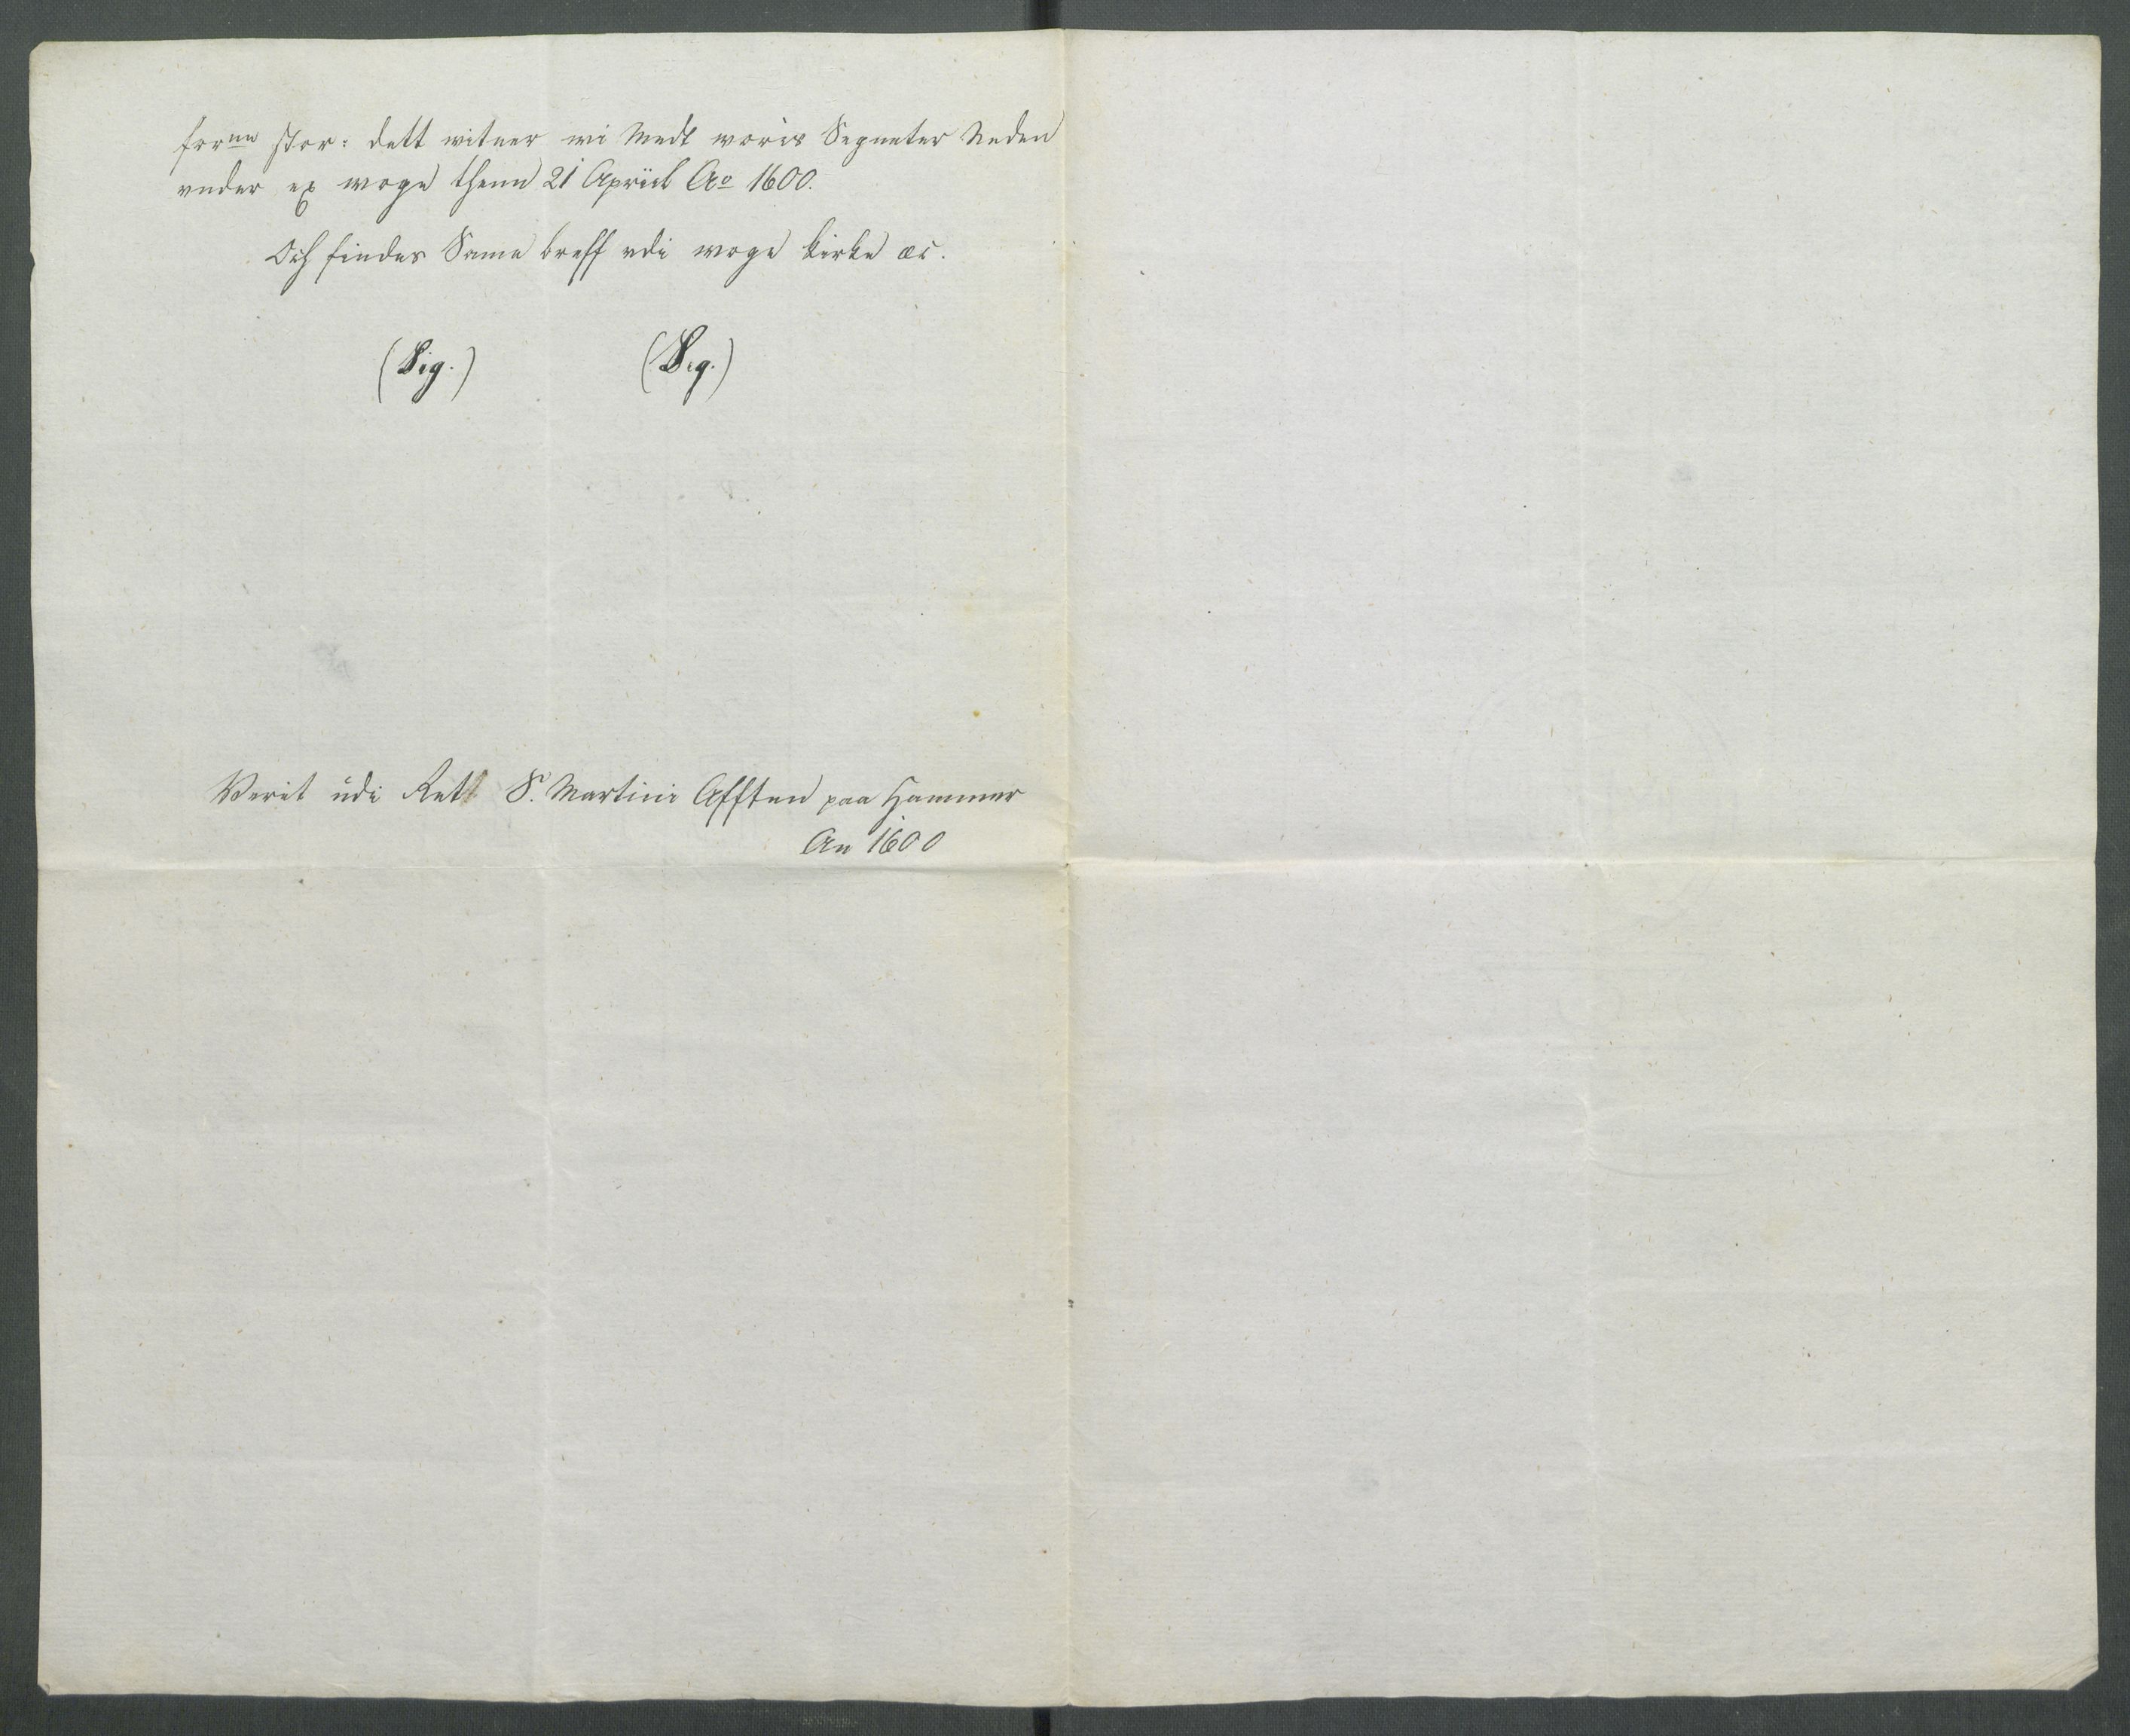 forne stor: dett witner wi Medt woris Segneter Neden
vnder ex woge thenn 21 Apriil Ao 1600.
Och findes Same breff vdi woge kirke ec.
(Sig.) (Sig.)
Verit udi Rett S. Martini Afften paa Hammer
An 1600